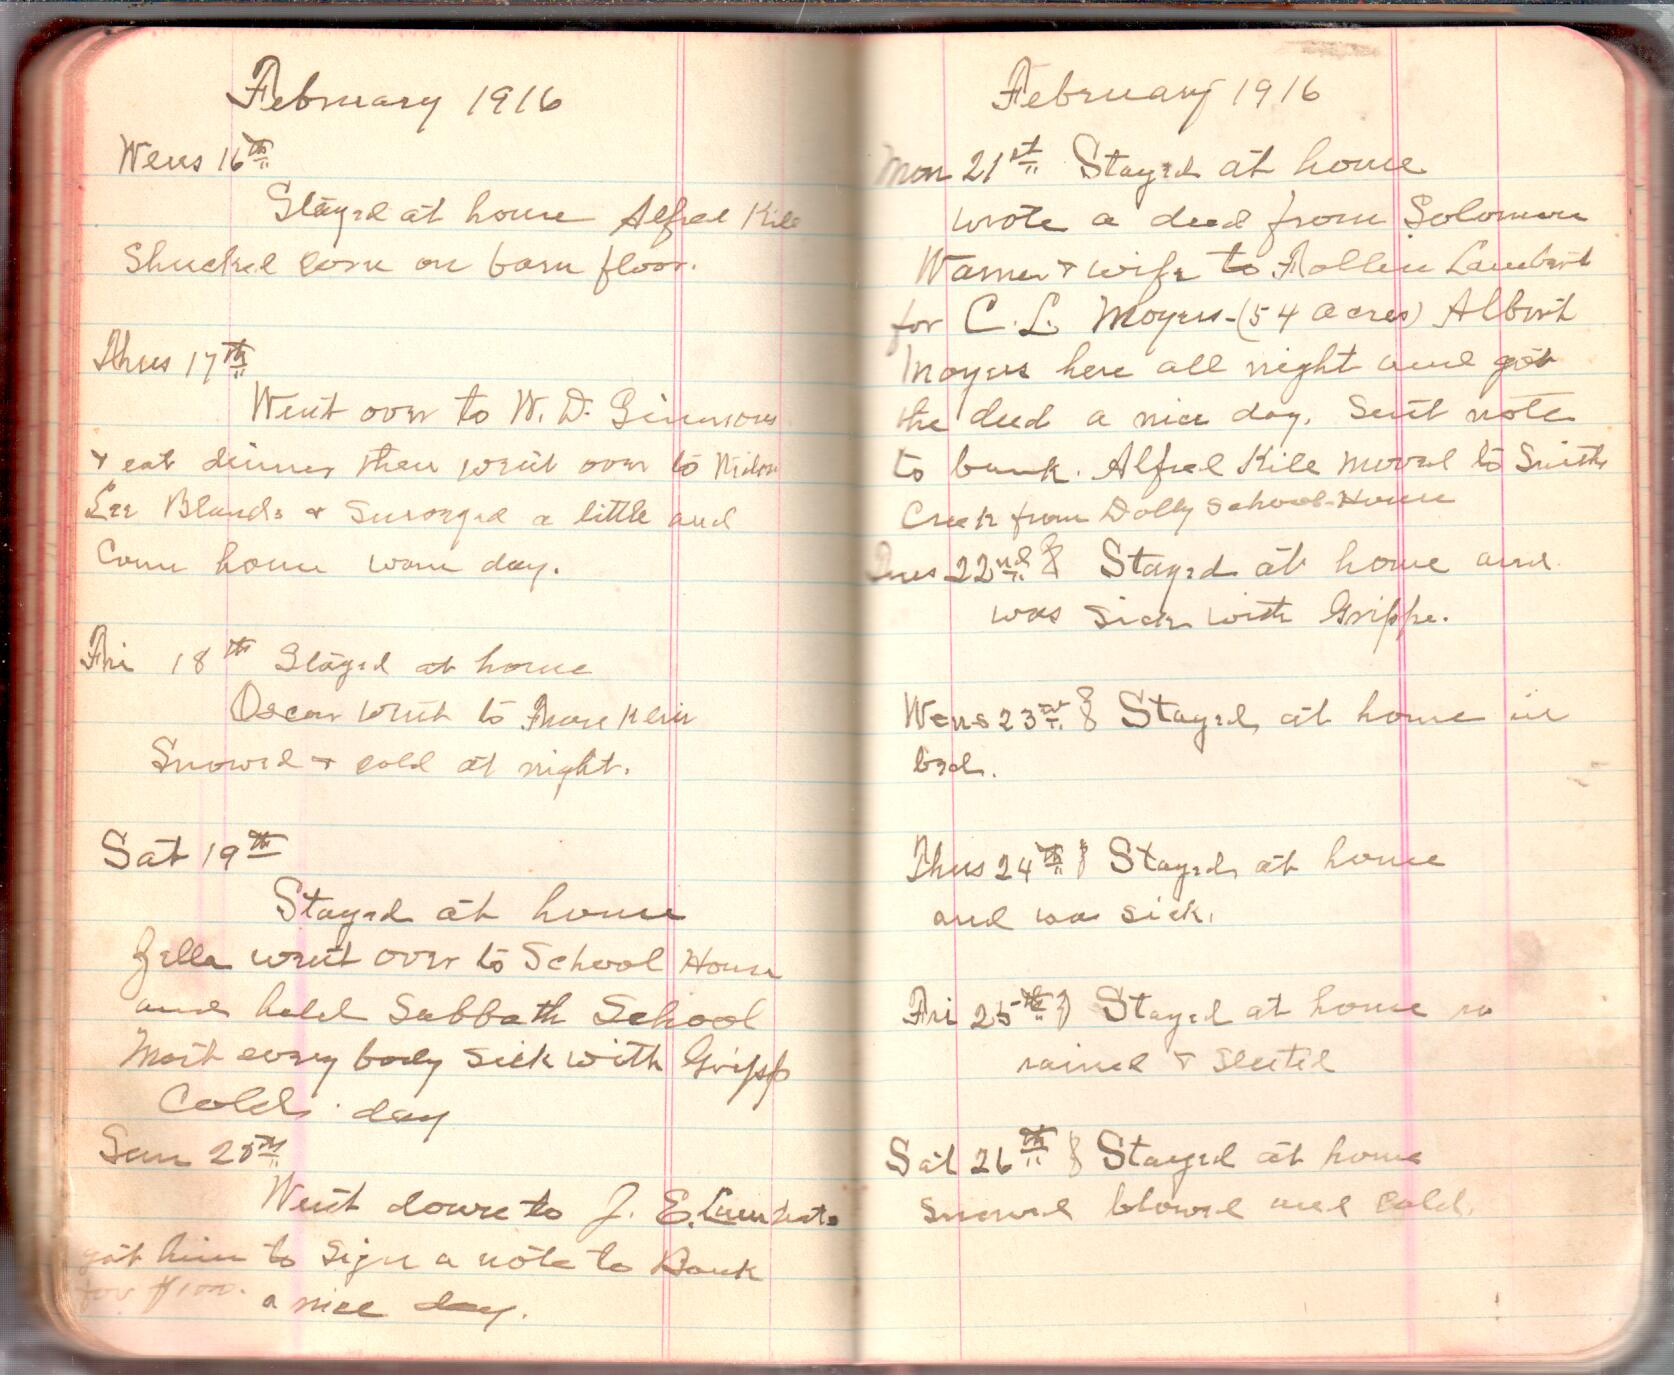 February 1916
Wens 16th
Stayed at home Alfred Kile
Shucked corn on barn floor.
Thus 17th
Went over to W. D. Simmons
& eat dinner then went over to
Lee Blands & Surveyed a little and
Come home warm day.
Fri 18th Stayed at home
Oscar went to
Snowed & cold at night.
Sat 19th
Stayed at home
Zella went over to School House
and held Sabbath School
Most every body sick with Gripp
Cold day
Sun 20th
Went down to J. E. Lamberts
got him to sign a note to Bank
for $100. a nice day.
February 1916
Mon 21st Stayed at home
wrote a deed from Solomon
Warner & wife to Rollin Lambert
for C. L. Moyers-(54 acres) Albert
Moyers here all night and got
the deed a nice day. Sent note
to bank. Alfred Kile moved to Smith
Creek from Dolly School-House
Tues 22nd Stayed at home and
was sick with Grippe.
Wens 23rd Stayed at home in
bed.
Thus 24th Stayed at home
and was sick.
Fri 25th Stayed at home ra
rained & sleeted
Sat 26th Stayed at home
snowed blowed and cold.